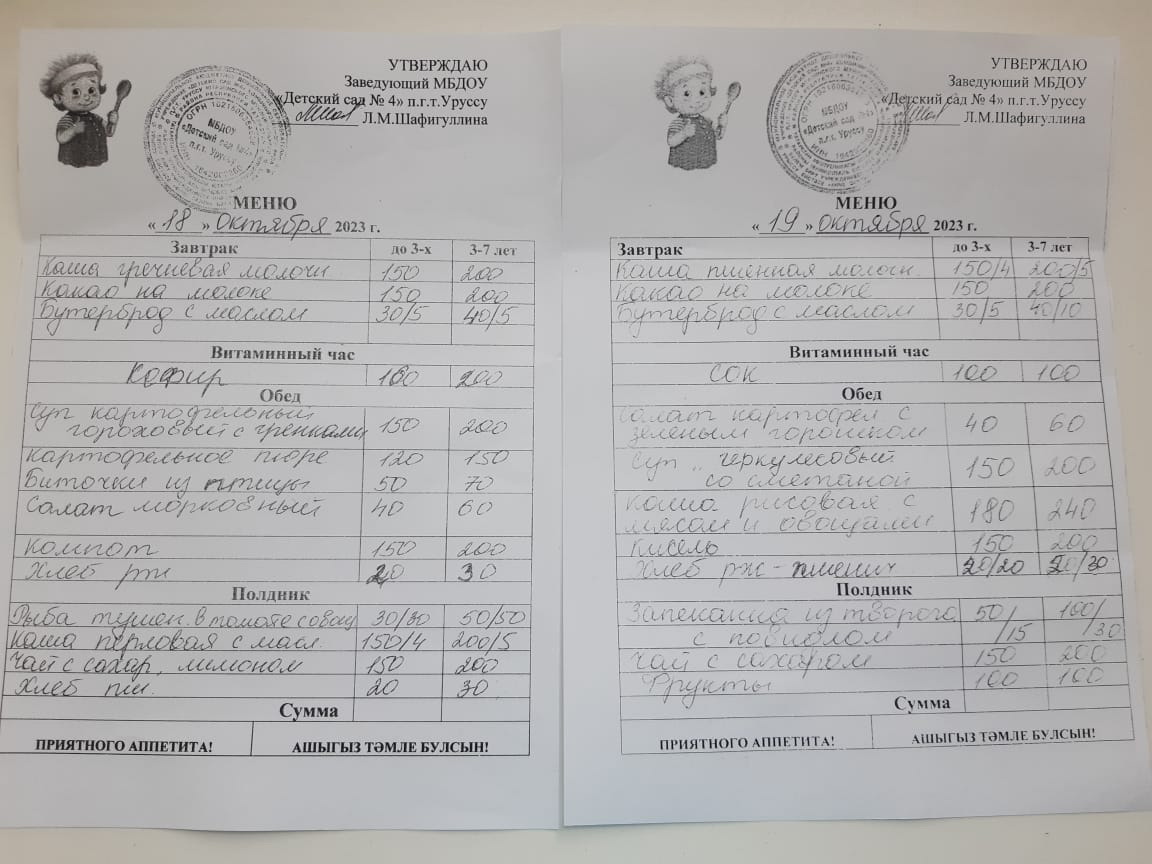 УТВЕРЖДАЮ
Заведующий МБДОУ
«Детский сад № 4» п.г.т.Уруссу
Л.М.Шафигуллина
МБДОУ
«Детский сад
п.г.т. Уруссу
МЕНЮ
«18» октября 2023 г.
Завтрак до 3-х 3-7 лет
Каша гречневая молочн 150 200
Какао на молоке 150 200
Бутерброд с маслом 30/5 40/5
Витаминный час
Кефир 200
Обед
Суп картофельный
гороховый с гренками 150 200
Картофельное пюре 120 150
Биточки из птицы 50 70
Салат морковный 40 60
Компот 150 200
Хлеб рж 20 30
Полдник
Рыба тушен. в томате с овощ 30/30 50/50
Каша перловая с масл. 150/4 200/5
Чай с сахар, лимоном 150 200
Хлеб пш. 20 30
Сумма
ПРИЯТНОГО АППЕТИТА! АШЫГЫЗ ТӘМЛЕ БУЛСЫН!
УТВЕРЖДАЮ
Заведующий МБДОУ
«Детский сад № 4» п.г.т.Уруссу
Л.М.Шафигуллина
МБДОУ
«Детский сад
п.г.т. Уруссу
МЕНЮ
«19» октября 2023 г.
Завтрак до 3-х 3-7 лет
Каша пшенная молочн. 150/4 200/5
Какао на молоке 150 200
Бутерброд с маслом 30/5 40/10
Витаминный час
Сок 100 100
Обед
Салат картофел с
зеленым горошком 40 60
Суп „ геркулесовый
со сметаной 150 200
Каша рисовая с
мясом и овощами 180 240
Кисель 150 200
Хлеб рж-пшенич /20 /30
Полдник
Запеканка из творога 50/ 100/
с повидлом /15 /30
Чай с сахаром 150 200
Фрукты 100 100
Сумма
ПРИЯТНОГО АППЕТИТА! АШЫГЫЗ ТӘМЛЕ БУЛСЫН!